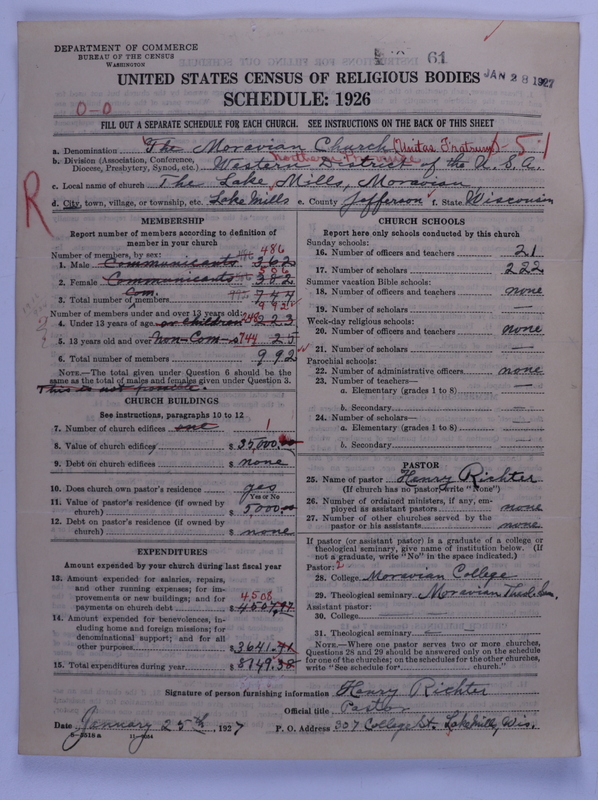 DEPARTMENT OF COMMERCE
BUREAU OF THE CENSUS
WASHINGTON
61
UNITED STATES CENSUS OF RELIGIOUS BODIES
JAN 28 1927
SCHEDULE: 1926
0-0
FILL OUT A SEPARATE SCHEDULE FOR EACH CHURCH. SEE INSTRUCTIONS ON THE BACK OF THIS SHEET
a. Denomination The Moravian Church (Unitas Fratrum) - 5-1
b. Division (Association, Conference, Northern Province
Diocese, Presbytery, Synod, etc.) Western District of the U.S.A.
c. Local name of church The Lake Mills, Moravian
d. City, town, village, or township, etc. Lake Mills e. County Jefferson f. State Wisconsin
R
MEMBERSHIP
Report number of members according to definition of
member in your church
Number of members, by sex: 486
1. Male Communicants 362
506
2. Female Communicants 382
Com.
3. Total number of members 744
992
Number of members under and over 13 years old:
4. Under 13 years of age or children 248 223
5. 13 years old and over Non-Com-s 744 25
6. Total number of members 992
NOTE.—The total given under Question 6 should be the
same as the total of males and females given under Question 3.
This is not possible.
CHURCH BUILDINGS
See instructions, paragraphs 10 to 12
7. Number of church edifices one 1
8. Value of church edifices $ 35,000.00
9. Debt on church edifices $ none
10. Does church own pastor's residence yes
Yes or No
11. Value of pastor's residence (if owned by
church) $ 5000.00
12. Debt on pastor's residence (if owned by
church) $ none
EXPENDITURES
Amount expended by your church during last fiscal year
13. Amount expended for salaries, repairs,
and other running expenses; for im-
provements or new buildings; and for 4508
payments on church debt $ 4507.97
14. Amount expended for benevolences, in-
cluding home and foreign missions; for
denominational support; and for all
other purposes $ 3641.41
15. Total expenditures during year $ 8149.38
CHURCH SCHOOLS
Report here only schools conducted by this church
Sunday schools:
16. Number of officers and teachers 21
17. Number of scholars 222
Summer vacation Bible schools:
18. Number of officers and teachers none
19. Number of scholars —
Week-day religious schools:
20. Number of officers and teachers none
21. Number of scholars —
Parochial schools:
22. Number of administrative officers none
23. Number of teachers—
a. Elementary (grades 1 to 8) —
b. Secondary —
24. Number of scholars—
a. Elementary (grades 1 to 8) —
b. Secondary —
PASTOR
25. Name of pastor Henry Richter
(If church has no pastor, write "None")
26. Number of ordained ministers, if any, em-
ployed as assistant pastors none
27. Number of other churches served by the
pastor or his assistants none
If pastor (or assistant pastor) is a graduate of a college or
theological seminary, give name of institution below. (If
not a graduate, write "No" in the space indicated.)
Pastor: 2
28. College Moravian College
29. Theological seminary Moravian Theol. Sem.
Assistant pastor:
30. College
31. Theological seminary — —
NOTE.—Where one pastor serves two or more churches,
Questions 28 and 29 should be answered only on the schedule
for one of the churches; on the schedules for the other churches,
write "See schedule for church."
Signature of person furnishing information Henry Richter
Official title Pastor
Date January 25th, 1927 P. O. Address 307 College St. Lake Mills, Wis.